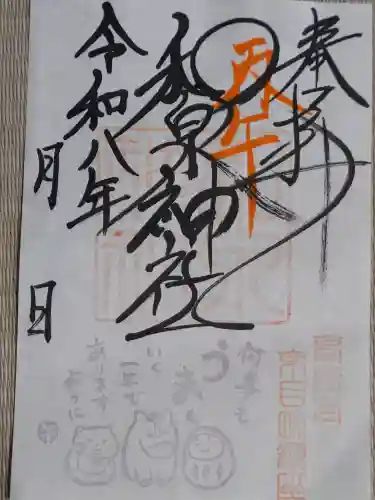 奉拝
丙午
和泉神社
令和八年
月
日
何事も
うまく
いく
一年で
ありますように